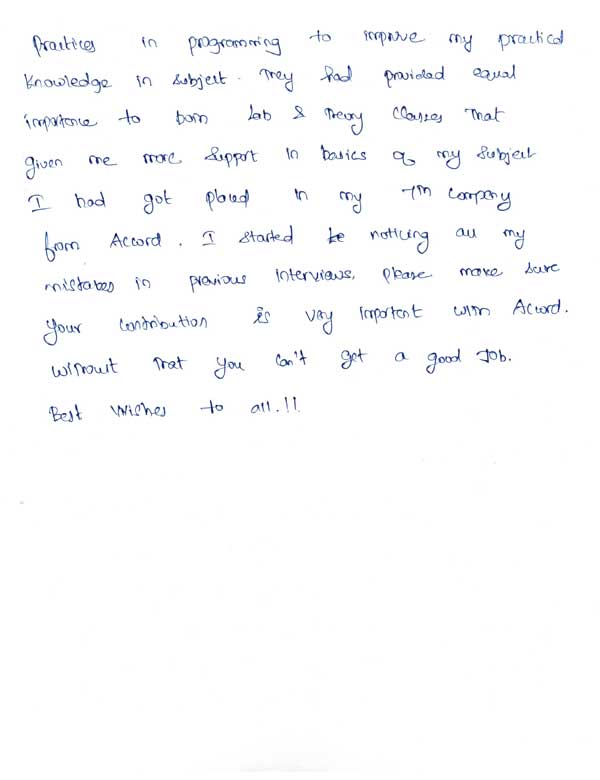 Practices in programming to improve my practical
knowledge in subject. They had provided equal
importance to both Lab & Theory Classes That
given me more support in basics of my subject
I had got placed in my 7th company
from Accord. I started noticing all my
mistakes in previous interviews, please make sure
your contribution is very important with Accord.
without that you can't get a good Job.
Best wishes to all.!!